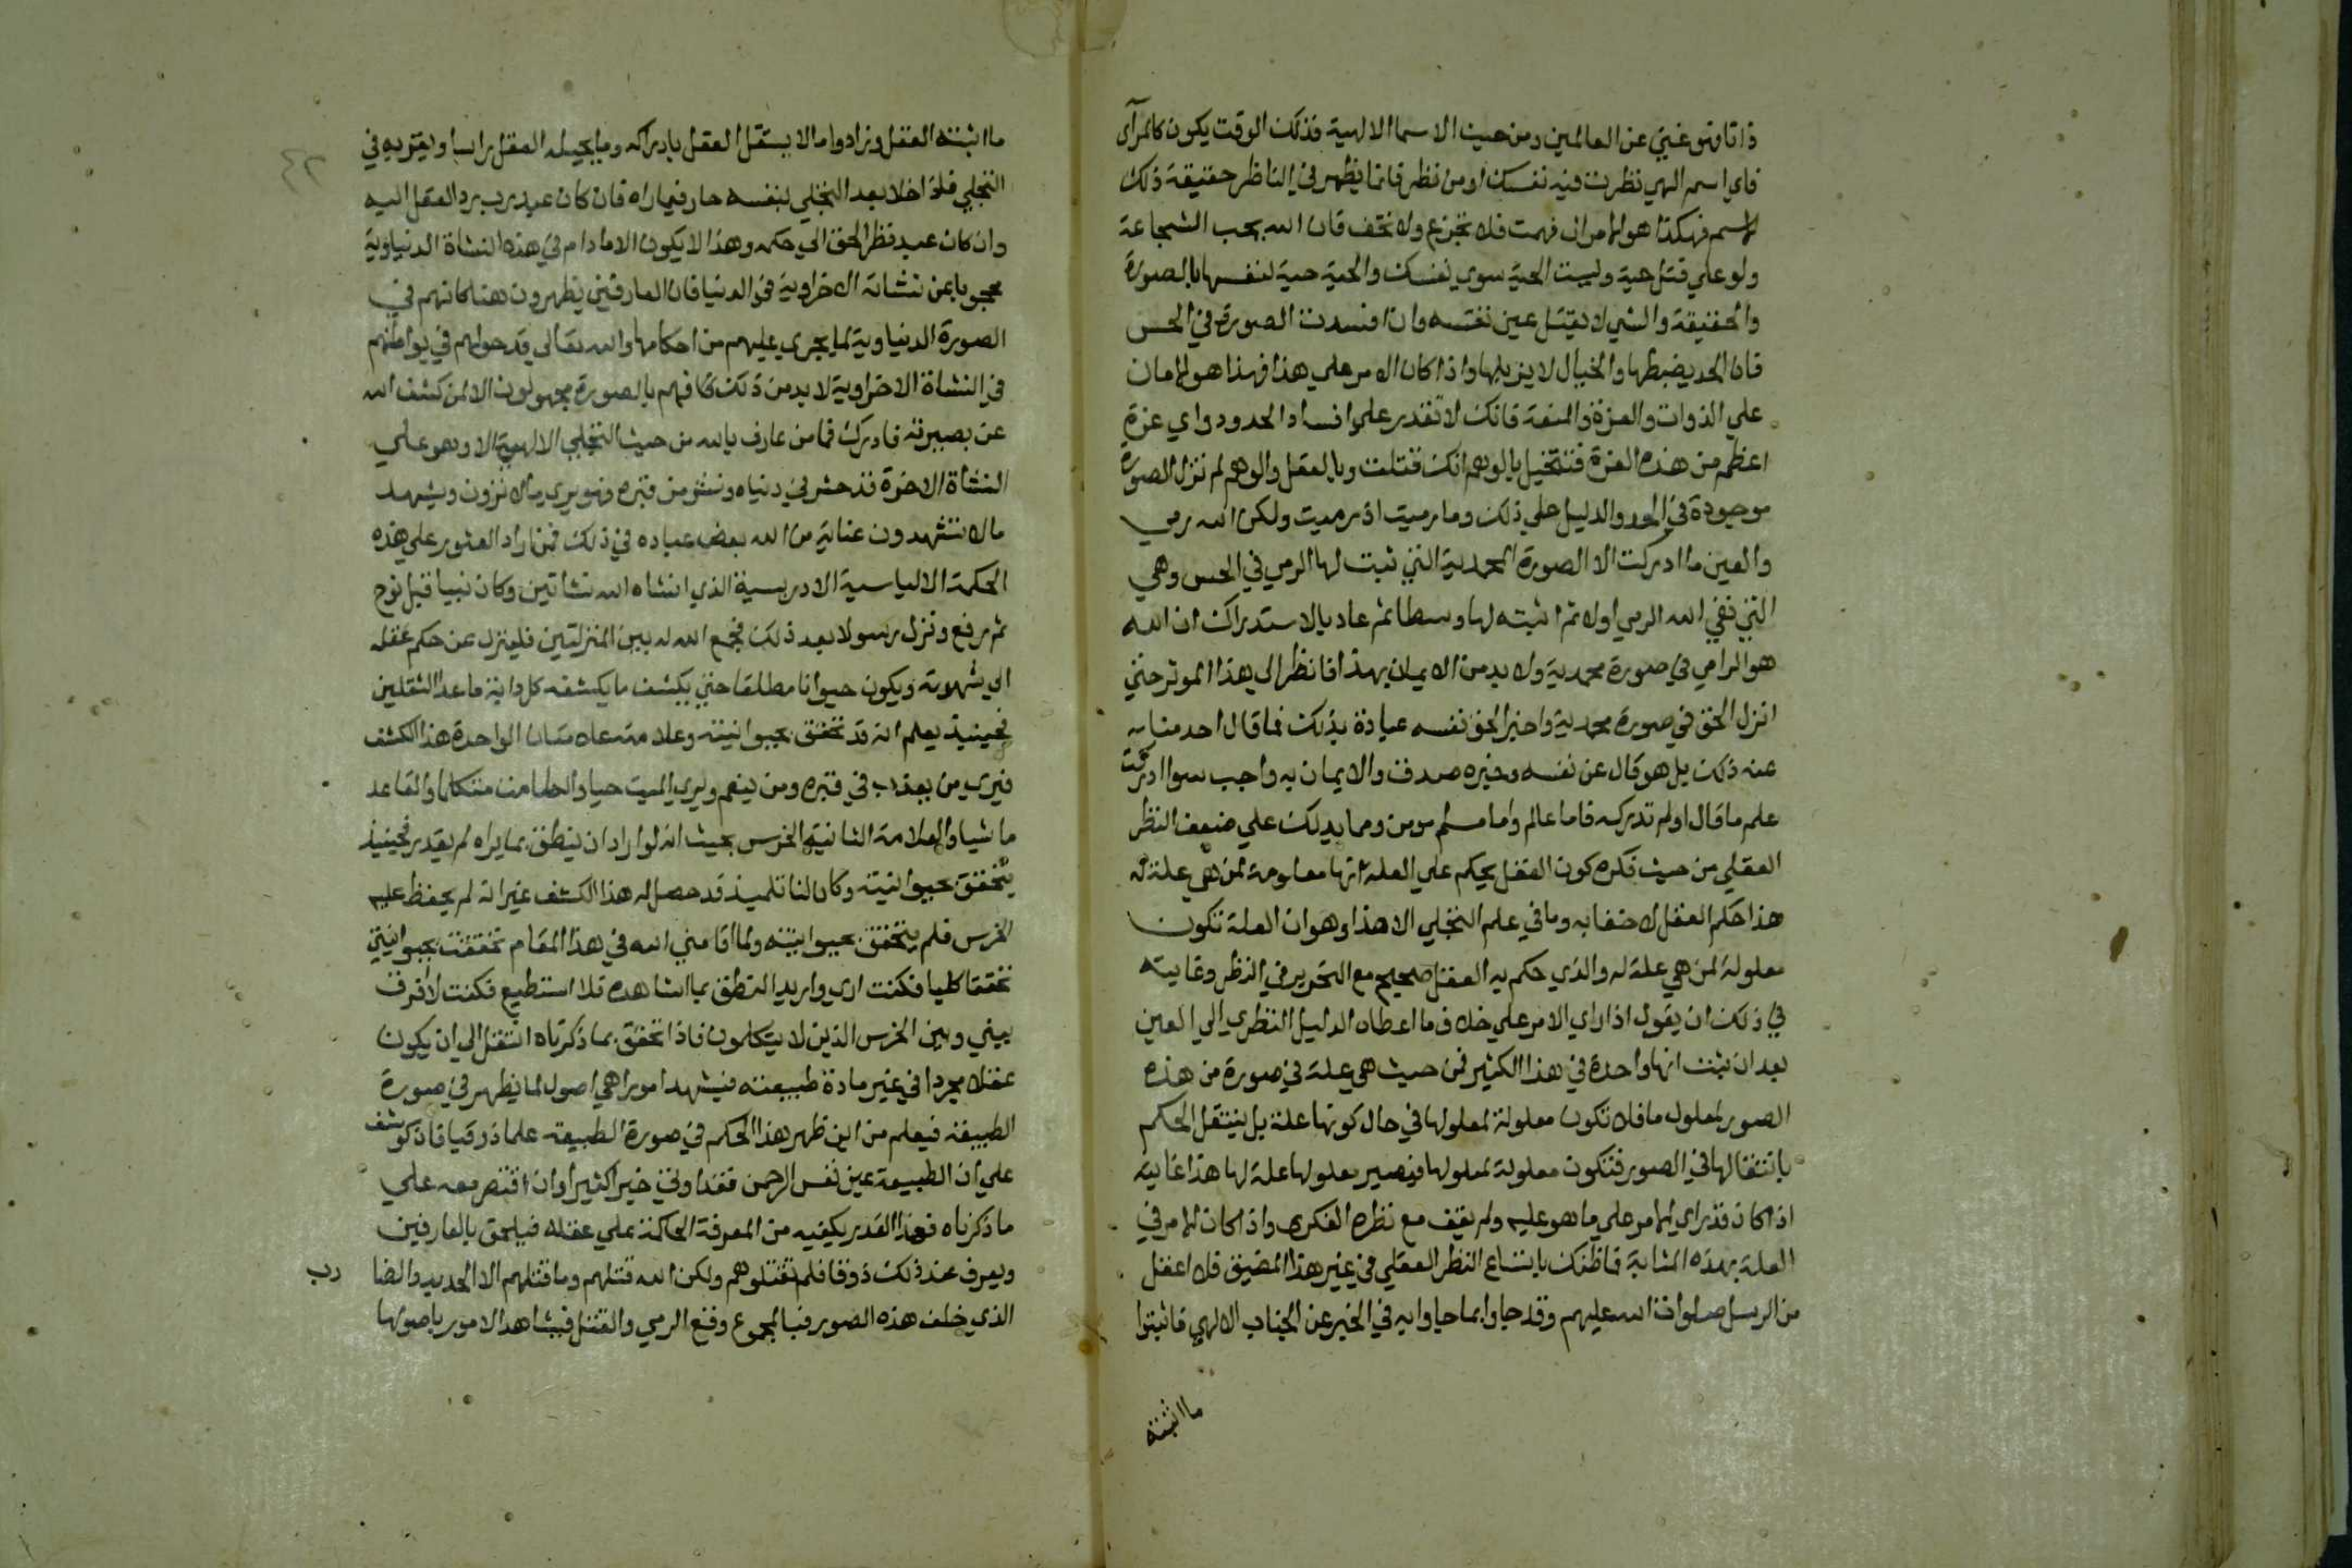 ذاتا وهو غني عن العالمين ومن حيث الاسما الالهية فذلك الوقت يكون كالمرآى
فاي اسم الهي نظرت فيه نفسك او من نظر فانما يظهر في الناظر حقيقة ذلك
الاسم فهكذا هو الامر ان فهمت فلا تجزع ولا تخف فان الله يحب الشجاعة
ولو علي قتل حية وليست الحية سوي نفسك والحية حية لنفسها بالصورة
والحقيقة والشي لا يقتل عين نفسه وان افسدت الصورة في الحس
فان الحد يضبطها والخيال لا يزيلها واذا كان الامر علي هذا فهذا هو الامان
علي الذوات والعزة والمنعة فانك لا تقدر علي افساد الحدود واي عزة
اعظم من هذه العزة فتتخيل بالوهم انك قتلت وبالعقل والوهم لم تزل الصورة
موجودة في الحد والدليل علي ذلك وما رميت اذ رميت ولكن الله رمي
والعين ما ادركت الا الصورة المحمدية التي ثبت لها الرمي في الحس وهي
التي نفي الله الرمي اولا ثم اثبته لها وسطا ثم عاد بالاستدراك ان الله
هو الرامي في صورة محمدية ولا بد من الايمان بهذا فانظر الي هذا الموثر حتي
انزل الحق في صورة محمدية واخبر الحق نفسه عباده بذلك فما قال احد منا
عنه ذلك بل هو قال عن نفسه وخبره صدق والايمان به واجب سوا ادركت
علم ما قال اولم تدركه فاما عالم واما مسلم مومن ومما يدلك علي ضعف النظر
العقلي من حيث فكره كون العقل يحكم علي العلة انها معلومة لمن هي علة له
هذا حكم العقل لا خفا به وما في علم التجلي الا هذا وهو ان العلة تكون
معلولة لمن هي علة له والذي حكم به العقل صحيح مع التحرير في النظر وغايته
في ذلك ان يقول اذا راي الامر علي خلاف ما اعطاه الدليل النظري الي العين
بعد ان ثبت انها واحدة في هذا الكثير فمن حيث هي علة في صورة من هذه
الصور لمعلول ما فلا تكون معلولة لمعلولها في حال كونها علة بل ينتقل الحكم
بانتقالها في الصور فتكون معلولة لمعلولها فيصير معلولها علة لها هذا غايته
اذا كان قد راي الامر علي ما هو عليه ولم يقف مع نظره الفكري واذا كان الامر في
العلة بهذه المثابة فما ظنك باتساع النظر العقلي في غير هذا المضيق فلا اعقل
من الرسل صلوات الله عليهم وقد جاوا بما جاوا به في الخبر عن الجناب الالهي فاثبتوا
ما اثبته
ما اثبته العقل وزادوا ما لا يستقل العقل بادراكه وما يحيله العقل راسا ويقر به في
التجلي فاذا خلا بعد التجلي بنفسه حار فيما راه فان كان عبد رب رد العقل اليه
وان كان عبد نظر الحق الي حكمه وهذا لا يكون الا ما دام في هذه النشاة الدنياوية
محجوبا عن نشاته الاخراوية في الدنيا فان العارفين يظهرون هنا كانهم في
الصورة الدنياوية لما يجري عليهم من احكامها والله تعالي قد حولهم في بواطنهم
في النشاة الاخراوية لا بد من ذلك فهم بالصورة مجهولون الا لمن كشف الله
عن بصيرته فادرك فما من عارف بالله من حيث التجلي الالهي الا وهو علي
النشاة الاخرة قد حشر في دنياه ونشر من قبره فهو يري ما لا ترون ويشهد
ما لا تشهدون عناية من الله ببعض عباده في ذلك فمن اراد العثور علي هذه
الحكمة الالياسية الادريسية الذي انشاه الله نشاتين وكان نبيا قبل نوح
ثم رفع ونزل رسولا بعد ذلك فجمع الله له بين المنزلتين فلينزل عن حكم عقله
الي شهوته ويكون حيوانا مطلقا حتي يكشف ما يكشفه كل دابة ما عدا الثقلين
فحينيذ يعلم انه قد تحقق بحيوانيته وعلامته علامتان الواحدة هذا الكشف
فيري من يعذب في قبره ومن ينعم ويري الميت حيا والصامت متكلما والقاعد
ماشيا والعلامة الثانية الخرس بحيث انه لو اراد ان ينطق بما يراه لم يقدر فحينيذ
يتحقق بحيوانيته وكان لنا تلميذ قد حصل له هذا الكشف غير انه لم يحفظ عليه
الخرس فلم يتحقق بحيوانيته ولما اقامني الله في هذا المقام تحققت بحيوانيتي
تحققا كليا فكنت اري واريد النطق بما اشاهده فلا استطيع فكنت لا افرق
بيني وبين الخرس الذين لا يتكلمون فاذا تحقق بما ذكرناه انتقل الي ان يكون
عقلا مجردا في غير مادة طبيعته فيشهد امورا هي اصول لما يظهر في صورة
الطبيعة فيعلم من اين ظهر هذا الحكم في صورة الطبيعة علما ذوقيا فان كوشف
علي ان الطبيعة عين نفس الرحمن فقد اوتي خيرا كثيرا وان اقتصر معه علي
ما ذكرناه فهذا القدر يكفيه من المعرفة الحاكمة علي عقله فيلحق بالعارفين
ويعرف عند ذلك ذوقا فلم تقتلوهم ولكن الله قتلهم وما قتلهم الا الحديد والضا رب
الذي خلف هذه الصور فبالمجموع وقع الرمي والقتل فيشاهد الامور باصولها